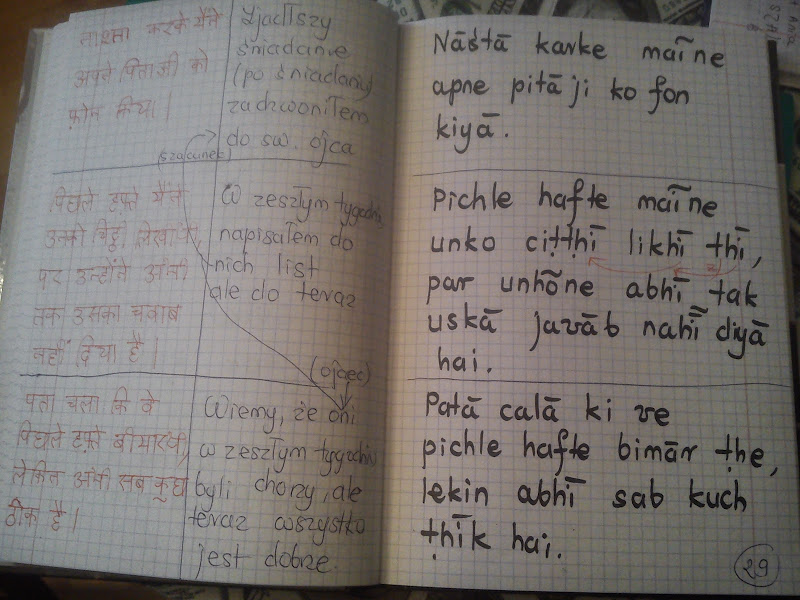 नाश्ता करके मैंने
अपने पिताजी को
फ़ोन किया।
Zjadłszy
śniadanie
(po śniadaniu)
zadzwoniłem
do sw. ojca
(szacunek)
Nāstā karke maĩne
apne pitā ji ko fon
kiyā.
पिछले हफ़्ते मैंने
उनको चिट्ठी लिखी थी,
पर उन्होंने अभी
तक उसका जवाब
नहीं दिया है।
W zeszłym tygodniu
napisałem do
nich list
ale do teraz
Pichle hafte maĩne
unko ciṭṭhī likhī ṭhī,
par unhõne abhī tak
uskā javāb nahī̃ diyā
hai.
पता चला कि वे
पिछले हफ़्ते बीमार थे,
लेकिन अभी सब कुछ
ठीक है।
(ojciec)
Wiemy, że oni
w zeszłym tygodniu
byli chorzy, ale
teraz wszystko
jest dobrze.
Patā calā ki ve
pichle hafte bimār ṭhe,
lekin abhī sab kuch
ṭhīk hai.
29